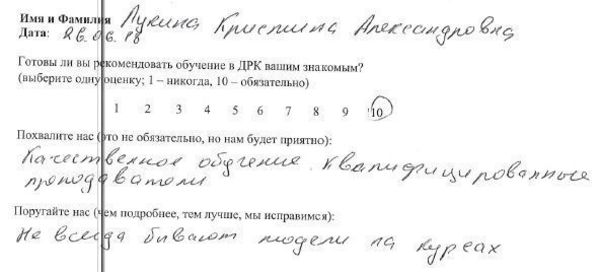 Имя и Фамилия Лукина Кристина Александровна
Дата: 26.06.18
Готовы ли вы рекомендовать обучение в ДРК вашим знакомым?
(выберите одну оценку; 1 – никогда, 10 – обязательно)
1 2 3 4 5 6 7 8 9 10
Похвалите нас (это не обязательно, но нам будет приятно):
Качественное обучение. Квалифицированные
преподаватели
Поругайте нас (чем подробнее, тем лучше, мы исправимся):
Не всегда бывают модели на курсах